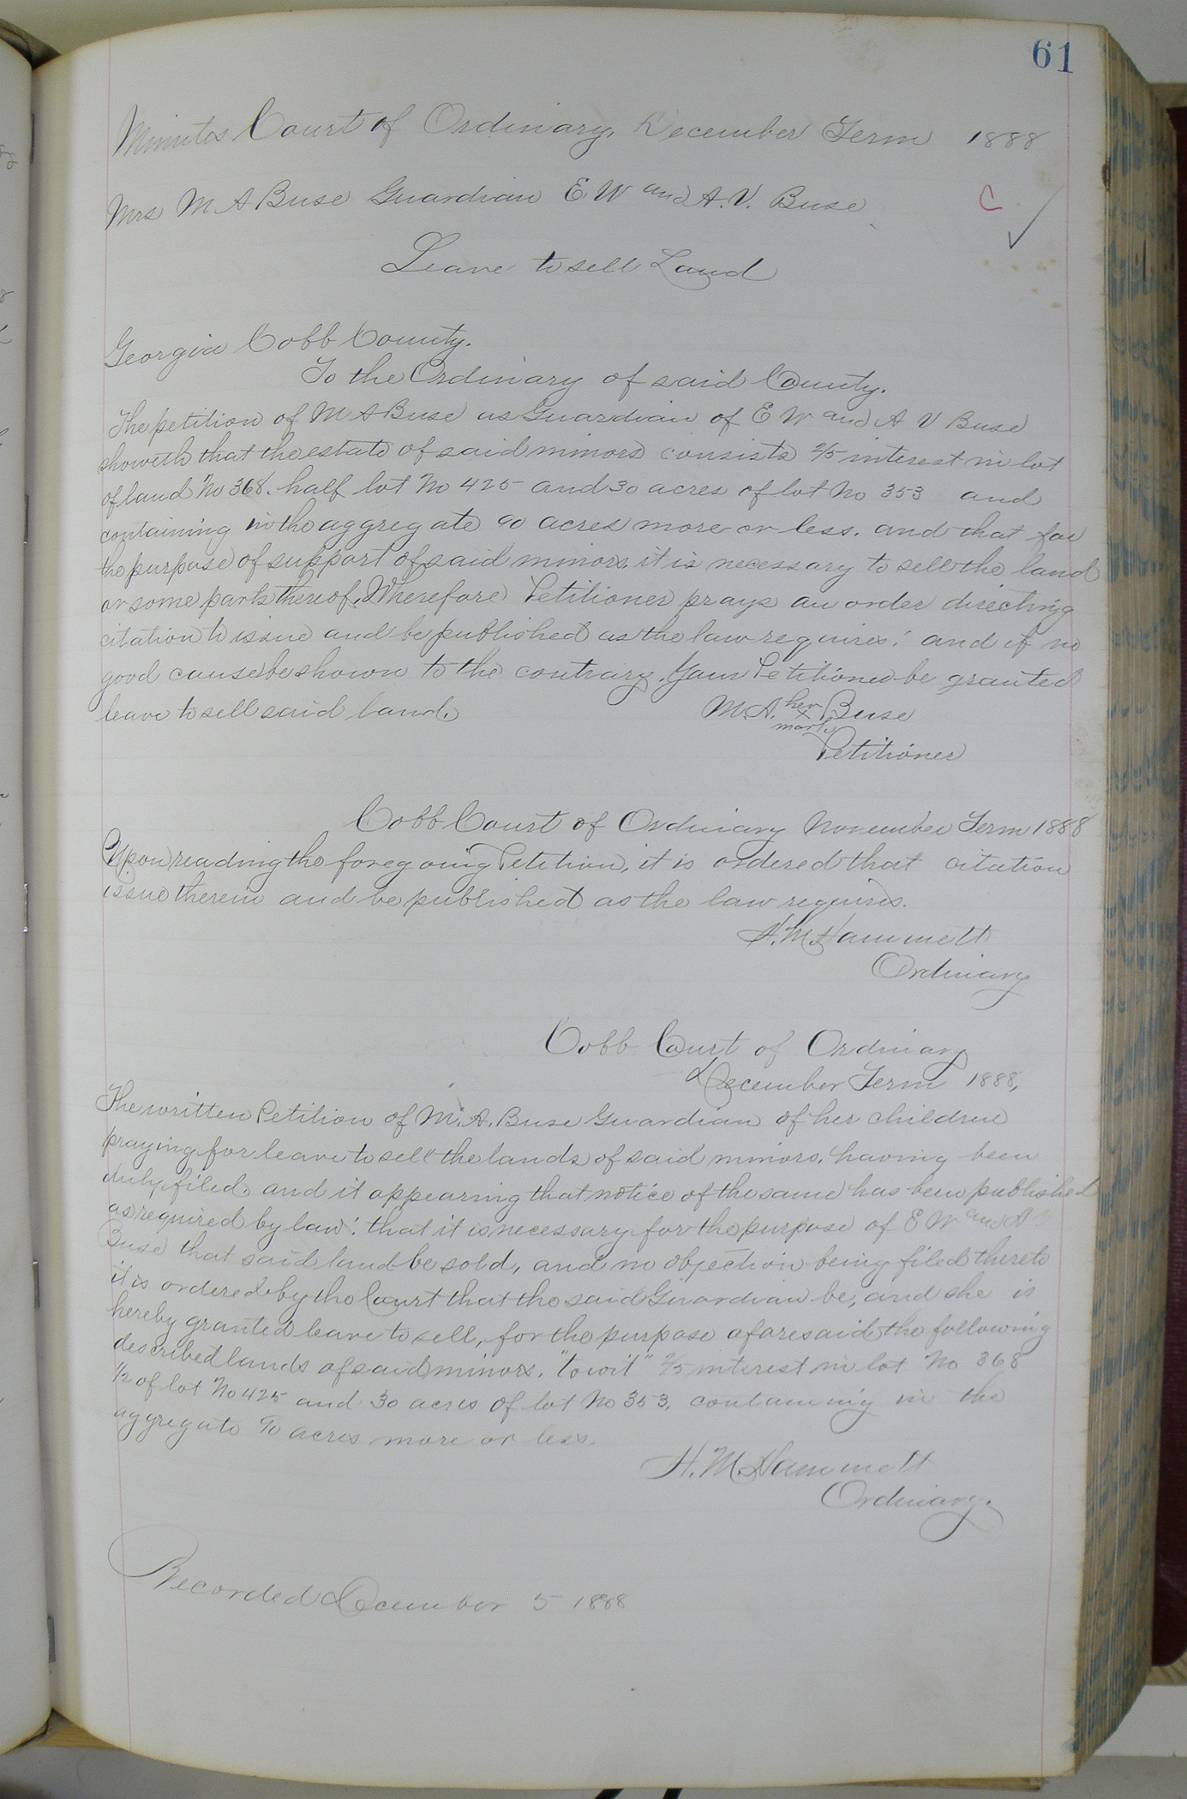 61
Minutes Court of Ordinary, December Term 1888
Mrs M A Buse Guardian E W and A. V. Buse C
Leave to sell Land
Georgia Cobb County.
To the Ordinary of said County.
The petition of M A Buse as Guardian of E W and A V Buse
showeth that the estate of said minors consists 2/5 interest in lot
of land No 368. half lot No 425 and 30 acres of lot No 353 and
containing in the aggregate 90 acres more or less. and that for
the purpose of support of said minors it is necessary to sell the land
or some parts thereof. Wherefore Petitioner prays an order directing
citation to issue and be published as the law requires: and if no
good cause be shown to the contrary. Your Petitioner be granted
leave to sell said land.
M. A. her x mark Buse
Petitioner
Cobb Court of Ordinary November Term 1888
Upon reading the foregoing Petition, it is ordered that citation
issue therein and be published as the law requires.
H. M. Hammett
Ordinary
Cobb Court of Ordinary
December Term 1888,
The written Petition of M. A. Buse Guardian of her children
praying for leave to sell the lands of said minors. having been
duly filed. and it appearing that notice of the same has been published
as required by law: that it is necessary for the purpose of E W and A
Buse that said land be sold, and no objection being filed thereto
it is ordered by the Court that the said Guardian be, and she is
hereby granted leave to sell, for the purpose aforesaid, the following
described lands of said minors. "towit" 2/5 interest in lot No 368
1/2 of lot No 425 and 30 acres of lot No 353, containing in the
aggregate 90 acres more or less.
H. M. Hammett
Ordinary.
Recorded December 5 1888